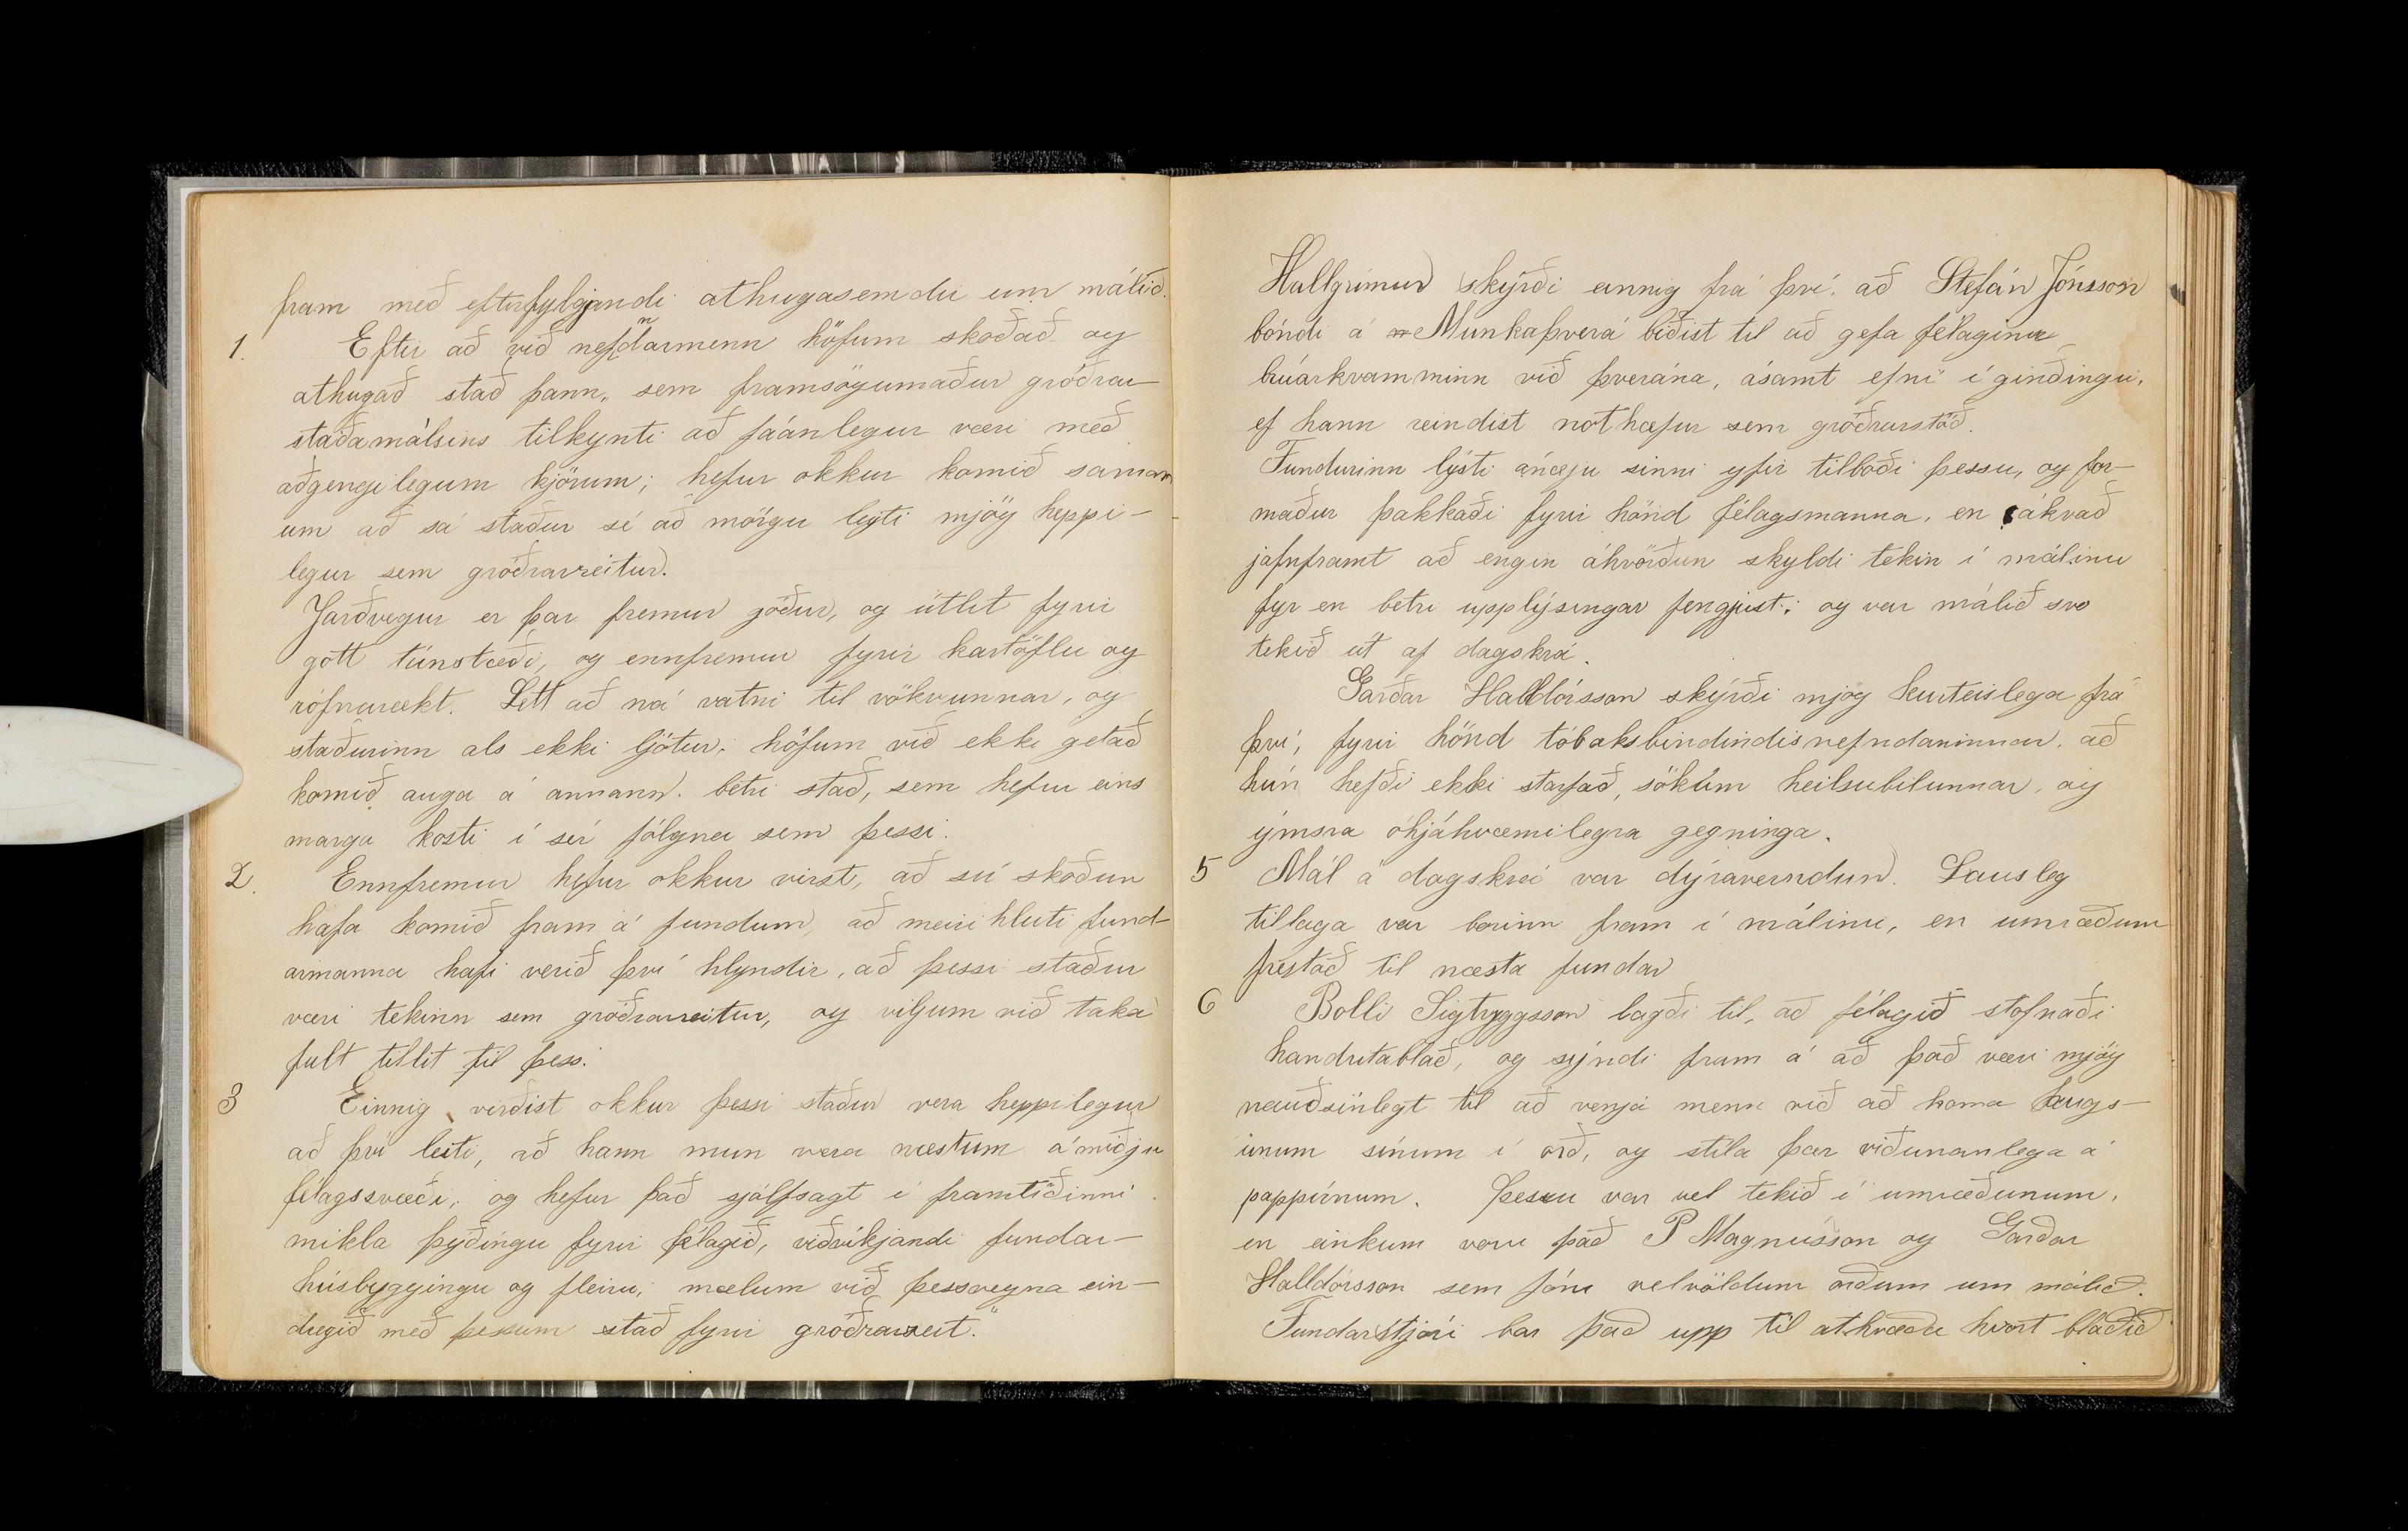 fram með efturfylgjandi athugasemdu um málið.
1. Eftir að við nefndarmenn höfum skoðað og
athugað stað þann, sem framsögumaður gróðrar-
staðamálsins tilkynti að fáanlegur væri með
aðgengilegum kjörum; hefur okkur komið saman
um að sá staður sé að mörgu leyti mjög heppi-
legur sem gróðrarreitur.
Jarðvegur er þar fremur góður, og útlit fyrir
gott túnstæði, og ennfremur fyrir kartöflu og
rófnarækt. Létt að ná vatni til vökvunnar, og
staðurinn als ekki ljótur; höfum við ekki getað
komið auga á annann betri stað, sem hefur eins
marga kosti í sér fólgna sem þessi.
2. Ennfremur hefur okkur virst, að sú skoðun
hafa komið fram á fundum, að meiri hluti fund-
armanna hafi verið því hlyndir, að þessi staður
væri tekinn sem gróðrarreitur, og viljum við taka
fult tillit til þess.
3 Einnig virðist okkur þessi staður vera heppilegur
að því leiti, að hann mun vera næstum á miðju
félagssvæði; og hefur það sjálfsagt í framtíðinni
mikla þýðingu fyrir félagið, viðvíkjandi fundar-
húsbyggingu og fleiru; mælum við þessvegna ein-
dregið með þessum stað fyrir gróðrarreit."
Hallgrímur skýrði einnig frá því að Stefán Jónsson
bóndi á Munkaþverá biðist til að gefa félaginu
brúarkvamminn við þverána, ásamt efni í girðingu,
ef hann reindist nothæfur sem gróðrarstöð.
Fundurinn lýsti ánæju sinni yfir tilboði þessu, og for-
maður þakkaði fyrir hönd félagsmanna, en ákvað
jafnframt að engin ákvörðun skyldi tekin í málinu
fyr en betri upplýsingar fengjust; og var málið svo
tekið út af dagskrá.
Garðar Halldórsson skýrði mjög kurteislega frá
því, fyrir hönd tóbaksbindindisnefndarinnar, að
hún hefði ekki starfað, sökum heilsubilunnar, og
ýmsra óhjákvæmilegra gegninga.
5 Mál á dagskrá var dýraverndun. Lausleg
tillaga var borinn fram í málinu, en umræðum
frestað til næsta fundar
6 Bolli Sigtryggsson lagði til, að félagið stofnaði
handritablað, og sýndi fram á að það væri mjög
nauðsinlegt til að venja menn við að koma hugs-
unum sínum í orð, og stíla þær viðunanlega á
pappírnum. Þessu var vel tekið í umræðunum,
en einkum voru það P Magnússon og Garðar
Halldórsson sem fóru velvöldum orðum um málið.
Fundarstjóri bar það upp til atkvæða hvort blaðið